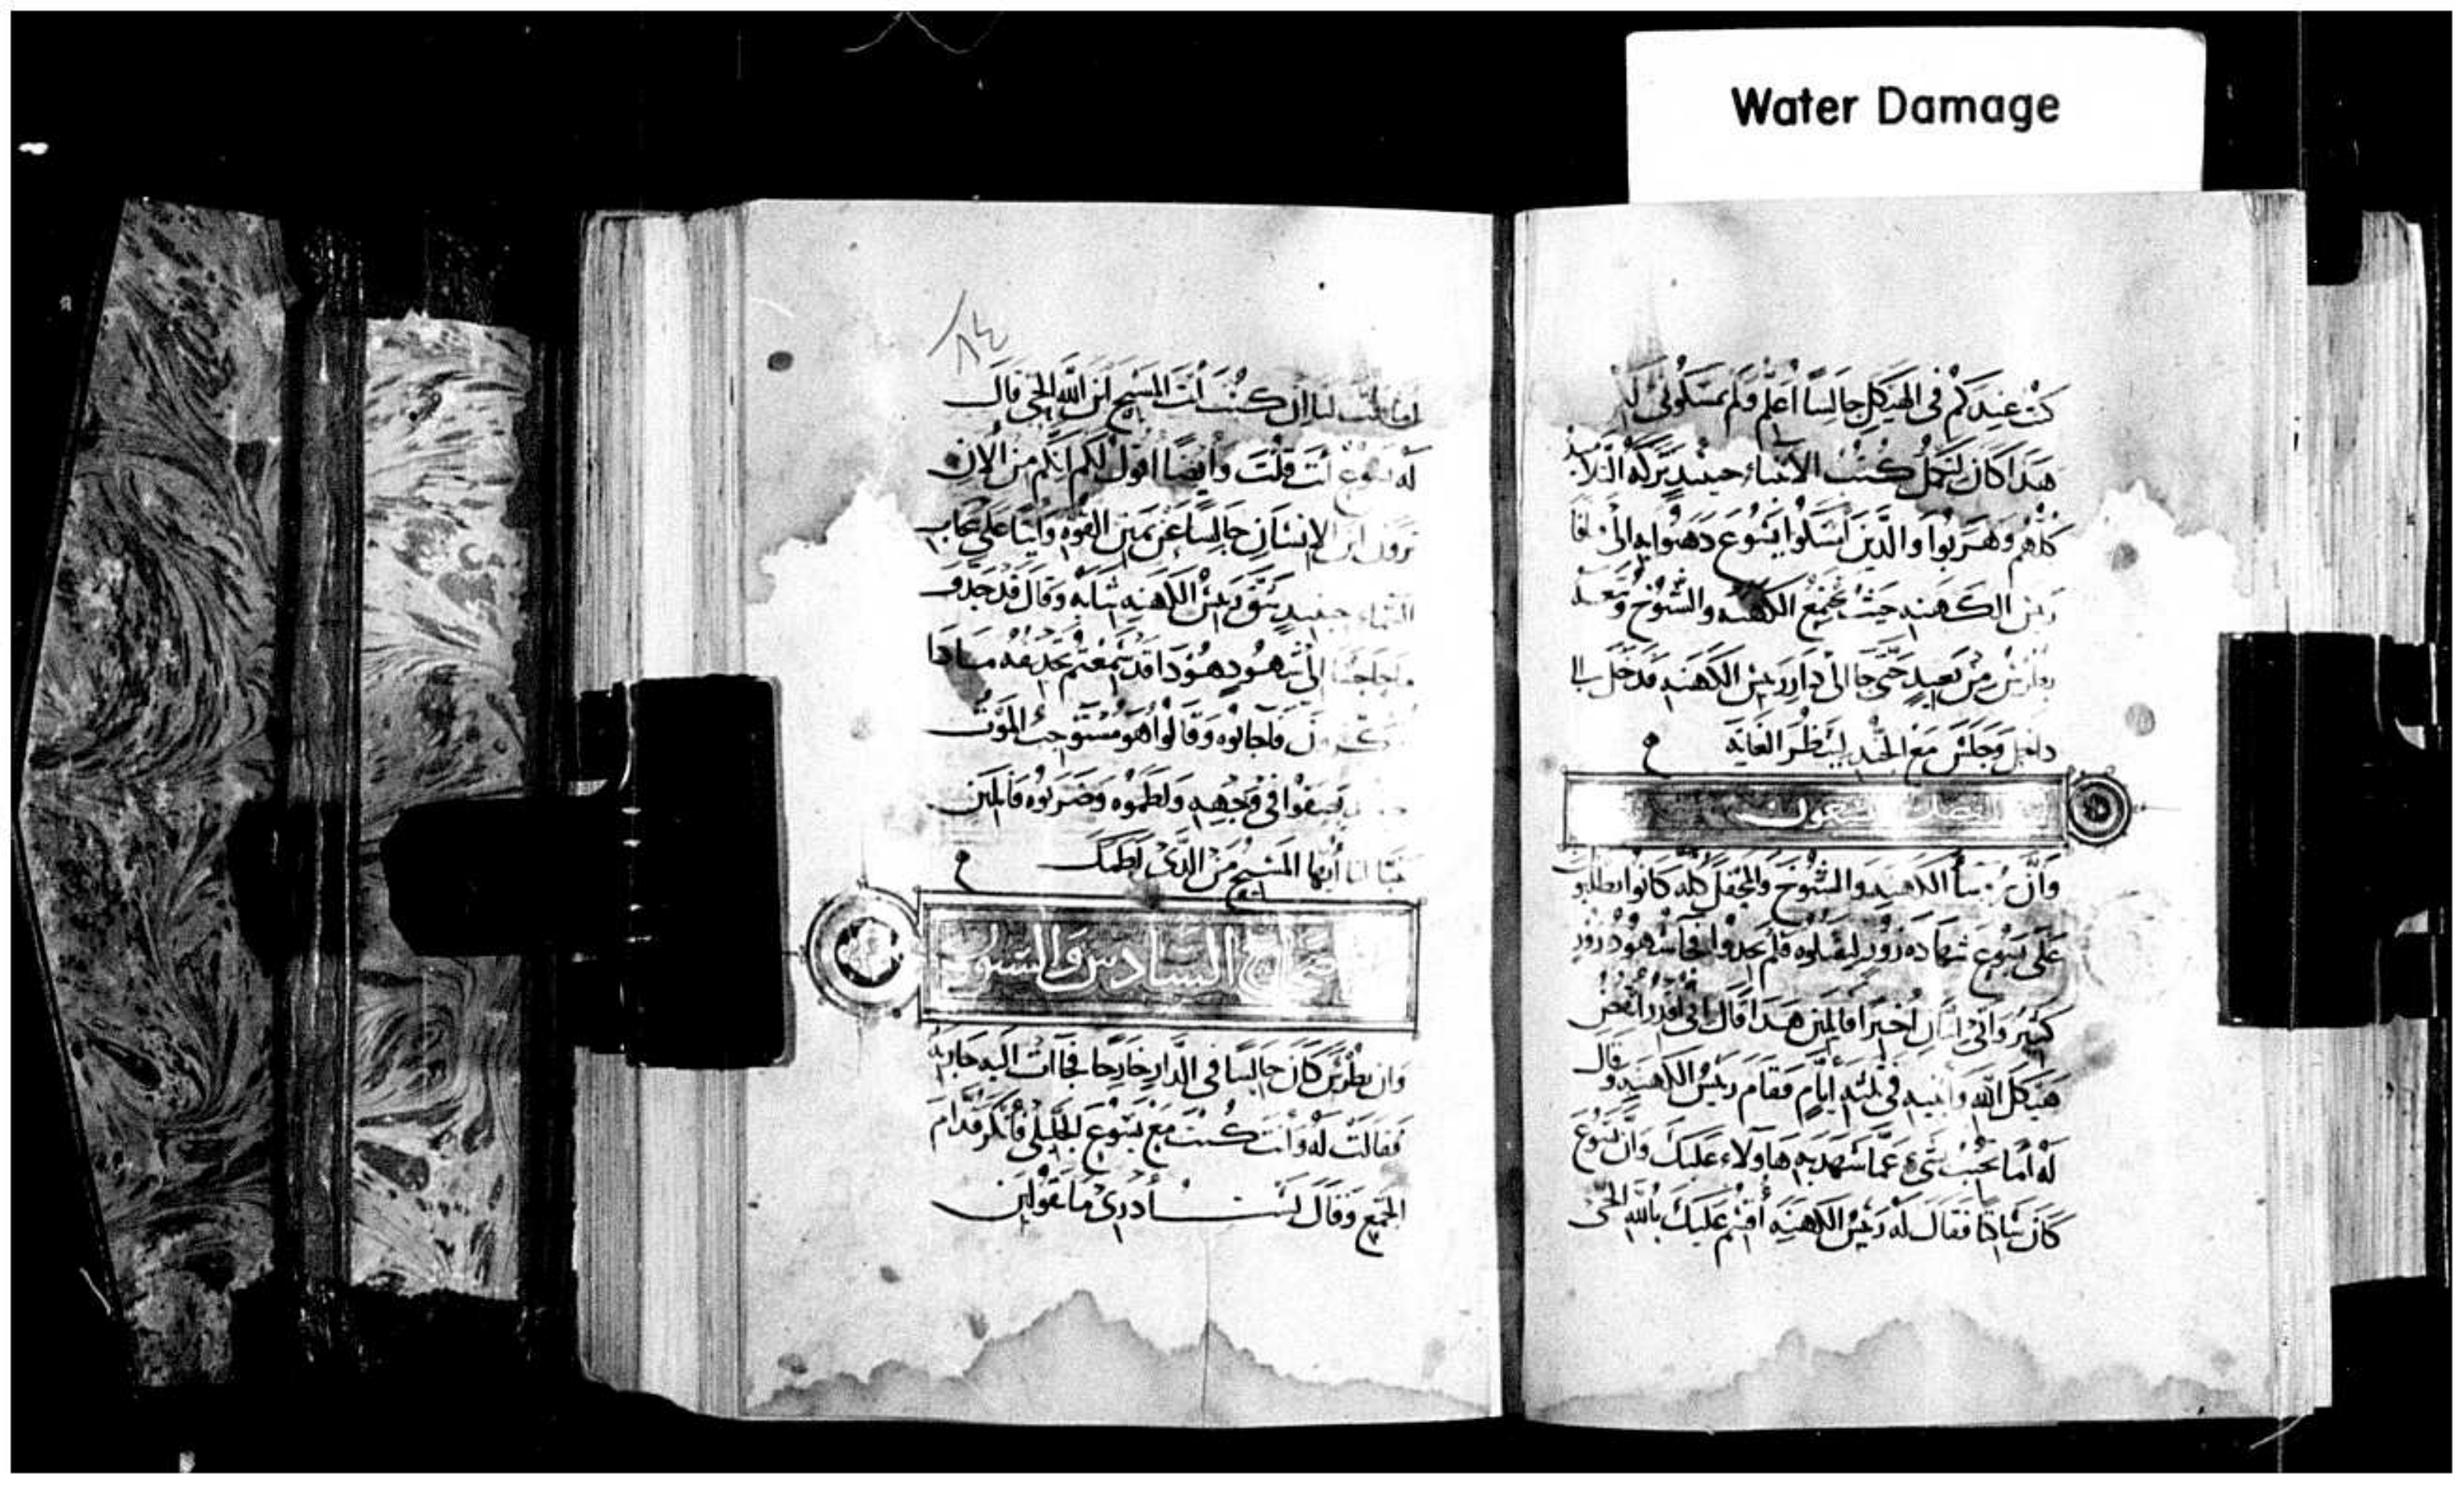 Water Damage
كنت عندكم في الهيكل جالسًا أعلم ولم تمسكوني لـ
هذا كان لتكمل كتب الأنبياء حينيد تركه التلاميذ
كلهم وهربوا والذين امسكوا يسوع دهبوا به الى قيافا
رييس الكهنه حيث تجمع الكهنه والشيوخ وتبعه
بطرس من بعيد حتى جا الى دار رييس الكهنه فدخل الى
داخل وجلس مع الجند لينظر الغايه
الفصل التسعون
وان روسا الكهنه والشيوخ والمحفل كله كانوا يطلبون
على يسوع شهاده زور ليقتلوه فلم يجدوا فجا شهود زور
كثير واتى اثنان اخيرا قايلين هذا قال اني اقدر انقض
هيكل الله وابنيه في ثلثه ايام فقام رييس الكهنه وقال
له اما تجيب بشيء عما شهد به هاولاء عليك وان يسوع
كان ساكتا فقال له رييس الكهنه أقسم عليك بالله الحي
٨٤
لنا ان كنت أنت المسيح ابن الله الحي قال
له يسوع أنت قلت وأيضا اقول لكم انكم من الان
ترون ابن الإنسان جالسا عن يمين القوه واتيا على سحاب
السماء حينيد شق رييس الكهنه ثيابه وقال قد جدف
ما حاجتنا الى شهود هودا قد سمعتم تجديفه مادا
فاجابوه وقالوا هو مستوجب الموت
بصقوا في وجهه ولطموه وضربوه قايلين
لنا أيها المسيح من الدي لطمك
السادس والتسعون
وان بطرس كان جالسا في الدار خارجا فجاات اليه جاريه
فقالت له وأنت كنت مع يسوع الجليلي فأنكر قدام
الجمع وقال لست أدري ما تقولين